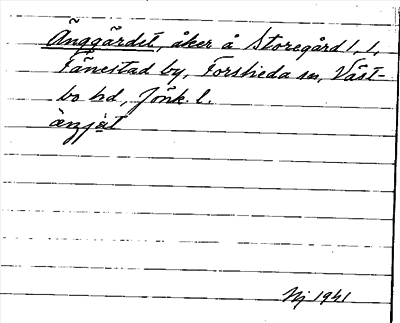 Änggärdet, åker å Storegård 1,1,
Tånestad by, Forsheda sn, Väst-
bo hd, Jönk l.
ænjæt
Nj 1941